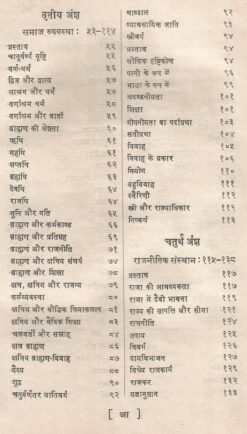 तृतीय अंश
समाज व्यवस्था: ५३-११४
प्रस्ताव ५५
चातुर्वर्ण्य सृष्टि ५५
वर्ण-धर्म ५६
द्विज और व्रात्य ५७
आश्रम और धर्म ५७
वर्ण और धर्म ५८
वर्णाश्रम और वार्ता ५९
ब्राह्मण की श्रेष्ठता ६०
ऋषि ६१
महर्षि ६१
सप्तर्षि ६२
ब्रह्मर्षि ६३
देवर्षि ६४
राजर्षि ६४
मुनि और यति ६५
ब्राह्मण और कर्मकाण्ड ६६
ब्राह्मण और प्रतिग्रह ६९
ब्राह्मण और राजनीति ७१
ब्राह्मण और क्षत्रिय संघर्ष ७४
ब्राह्मण और शिक्षा ७८
क्षत्र, क्षत्रिय और राजन्य ७९
कर्मव्यवस्था ८०
क्षत्रिय और बौद्धिक क्रियाकलाप ८१
क्षत्रिय और वैदिक शिक्षा ८३
चक्रवर्ती और सम्राट् ८४
क्षत्र ब्राह्मण ८६
क्षत्रिय ब्राह्मण-विवाह ८७
वैश्य ८८
शूद्र ९०
चतुर्वर्णेतर जातिवर्ग ९२
चाण्डाल ९२
व्यावसायिक जाति ९३
स्त्रीवर्ग ९४
प्रस्ताव ९४
लौकिक दृष्टिकोण ९४
पत्नी के रूप में ९६
माता के रूप में ९९
अदण्डनीयता १०१
शिक्षा १०१
गोपनीयता वा पर्दाप्रथा १०३
सतीप्रथा १०४
विवाह १०५
विवाह के प्रकार १०६
नियोग ११०
बहुविवाह १११
स्वैरिणी ११२
स्त्री और राज्याधिकार ११२
निष्कर्ष ११३
चतुर्थ अंश
राजनीतिक संस्थान: ११५-१३८
प्रस्ताव ११७
राजा की आवश्यकता ११७
राजा में दैवी भावना ११९
राज्य की उत्पत्ति और सीमा १२१
राजनीति १२४
उपाय १२५
त्रिवर्ग १२६
दायविभाजन १२६
विधेय राजकार्य १२९
राजकर १३२
यज्ञानुष्ठान १३३
[ आ ]